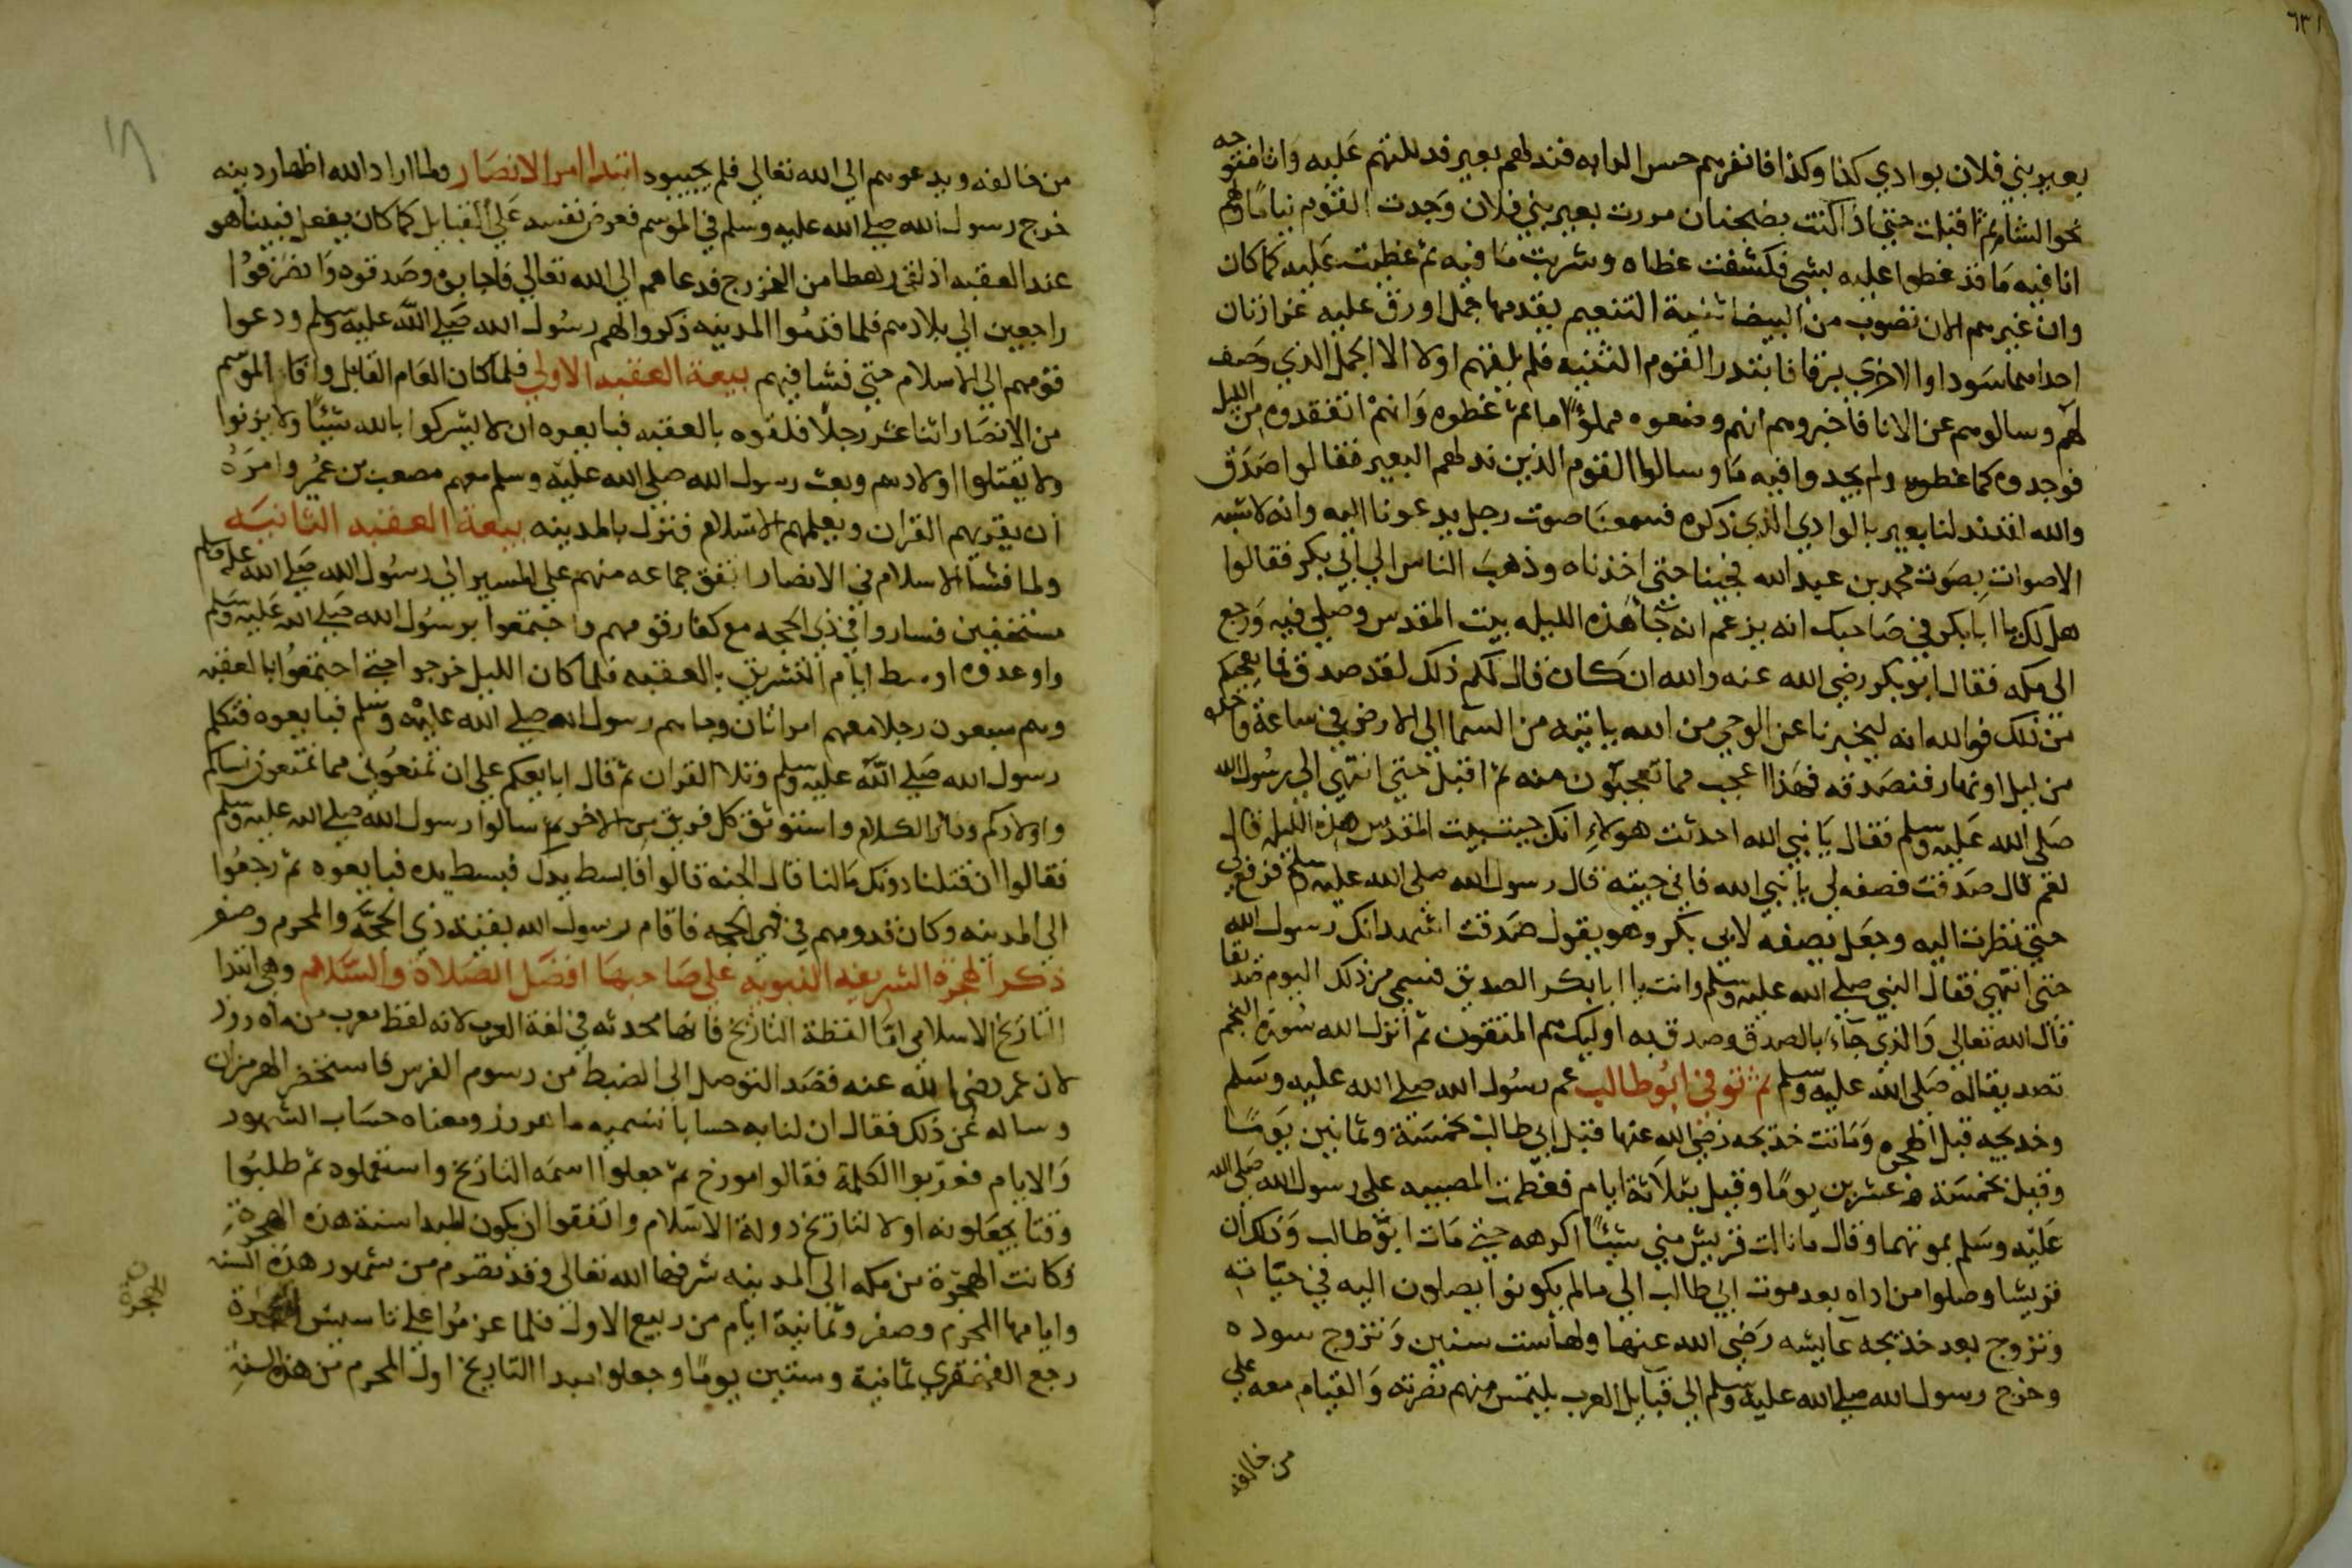 بعير بني فلان بوادي كذا وكذا فانفرهم حس الدابه فند لهم بعير فدللتهم عليه وانا متوجه
نحو الشام ثم اقبلت حتى اذا كنت بضجنان مررت بعير بني فلان وجدت القوم نياما ولهم
انا فيه ما قد غطوا عليه بشي فكشفت غطاه وشربت ما فيه ثم غطيت عليه كما كان
وان عيرهم الان تصوب من البيضا ثنية التنعيم يقدمها جمل اورق عليه غرارتان
احداهما سودا والاخري برقا فابتدر القوم الثنيه فلم يلقهم اولا الا الجمل الذي وصف
لهم وسالوهم عن الانا فاخبروهم انهم وضعوه مملؤا ما ثم غطوه وانهم انتقدوه من الليل
فوجدوه كما غطوه ولم يجدوا فيه ما وسالوا القوم الذين ند لهم البعير فقالوا صدق
والله لقد ند لنا بعير بالوادي الذي ذكره فسمعنا صوت رجل يدعونا اليه وانه لاشبه
الاصوات بصوت محمد بن عبد الله فجينا حتى اخذناه وذهب الناس الي ابي بكر فقالوا
هل لك يا ابا بكر في صاحبك انه يزعم انه جا هذه الليله بيت المقدس وصلي فيه ورجع
الى مكه فقال ابو بكر رضى الله عنه والله ان كان قال لكم ذلك لقد صدق فما يعجبكم
من ذلك فوالله انه ليخبرنا عن الوحي من الله ياتيه من السما الي الارض في ساعة واحده
من ليل او نهار فنصدقه فهذا اعجب مما تعجبون منه ثم اقبل حتى انتهي الي رسول الله
صلى الله عليه وسلم فقال يا نبي الله احدثت هولاء انك جيت بيت المقدس هذه الليله قال
نعم قال صدقت فصفه لي يا نبي الله فاني جيته قال رسول الله صلى الله عليه وسلم فرفع لي
حتى نظرت اليه وجعل يصفه لابي بكر وهو يقول صدقت اشهد انك رسول الله
حتى انتهي فقال النبي صلى الله عليه وسلم وانت يا ابا بكر الصديق فسمي من ذلك اليوم صديقا
قال الله تعالي والذي جاء بالصدق وصدق به اوليك هم المتقون ثم انزل الله سورة النجم
تصديقا له صلى الله عليه وسلم ثم توفي ابو طالب عم رسول الله صلى الله عليه وسلم
وخديجه قبل الهجره وماتت خديجه رضي الله عنها قبل ابي طالب بخمسة وثمانين يوما
وقيل بخمسة وعشرين يوما وقيل بثلاثة ايام فعظمت المصيبه على رسول الله صلى الله
عليه وسلم بموتهما وقال ما نالت قريش مني شيئا اكرهه حتى مات ابو طالب وذلك ان
قريشا وصلوا من اذاه بعد موت ابي طالب الي ما لم يكونوا يصلون اليه في حياته
وتزوج بعد خديجه عايشه رضي الله عنها ولها ست سنين وتزوج سوده
وخرج رسول الله صلى الله عليه وسلم الي قبايل العرب يلتمس منهم نصرته والقيام معه علي
من خالفه
من خالفه ويدعوهم الي الله تعالي فلم يجيبوه ابتدا امر الانصار ولما اراد الله اظهار دينه
خرج رسول الله صلى الله عليه وسلم في الموسم فعرض نفسه على القبايل كما كان يفعل فبينا هو
عند العقبه اذ لقي رهطا من الخزرج فدعاهم الي الله تعالي فاجابوه وصدقوه وانصرفوا
راجعين الي بلادهم فلما قدموا المدينه ذكروا لهم رسول الله صلى الله عليه وسلم ودعوا
قومهم الي الاسلام حتى فشا فيهم بيعة العقبه الاولي فلما كان العام القابل وافا الموسم
من الانصار اثنا عشر رجلا فلقوه بالعقبه فبايعوه ان لا يشركوا بالله شيئا ولا يزنوا
ولا يقتلوا اولادهم وبعث رسول الله صلى الله عليه وسلم معهم مصعب بن عمير وامره
ان يقريهم القران ويعلمهم الاسلام فنزل بالمدينه بيعة العقبه الثانيه
ولما فشا الاسلام في الانصار اتفق جماعه منهم على المسير الي رسول الله صلى الله عليه وسلم
مستخفين فساروا في ذي الحجه مع كفار قومهم واجتمعوا برسول الله صلى الله عليه وسلم
واوعدوه اوسط ايام التشريق بالعقبه فلما كان الليل خرجوا حتى اجتمعوا بالعقبه
وهم سبعون رجلا معهم امراتان وجاهم رسول الله صلى الله عليه وسلم فبايعوه فتكلم
رسول الله صلى الله عليه وسلم وتلا القران ثم قال ابايعكم على ان تمنعوني مما تمنعون نساكم
واولادكم ودار الكلام واستوثق كل فريق من الاخر ثم سالوا رسول الله صلى الله عليه وسلم
فقالوا ان قتلنا دونك ما لنا قال الجنة قالوا فابسط يدك فبسط يده فبايعوه ثم رجعوا
الي المدينه وكان قدومهم في ذي الحجه فاقام رسول الله بقية ذي الحجة والمحرم وصفر
ذكر الهجره الشريفه النبويه على صاحبها افضل الصلاة والسلام وهي ابتدا
التاريخ الاسلامي اما لفظة التاريخ فانها محدثه في لغة العرب لانه لفظ معرب من ماه روز
لان عمر رضى الله عنه قصد التوصل الى الضبط من رسوم الفرس فاستحضر الهرمزان
وساله عن ذلك فقال ان لنا به حسابا نسميه ماهروز ومعناه حساب الشهور
والايام فعربوا الكلمة فقالوا مورخ ثم جعلوا اسمه التاريخ واستعملوه ثم طلبوا
وقتا يجعلونه اولا لتاريخ دولة الاسلام واتفقوا ان يكون المبدا سنة هذه الهجرة
وكانت الهجرة من مكه الى المدينه شرفها الله تعالى وقد تصرم من شهور هذه السنه
وايامها المحرم وصفر وثمانية ايام من ربيع الاول فلما عزموا على تاسيس الهجرة
رجع القهقري ثمانية وستين يوما وجعلوا مبدا التاريخ اول المحرم من هذه السنة
الهجرة